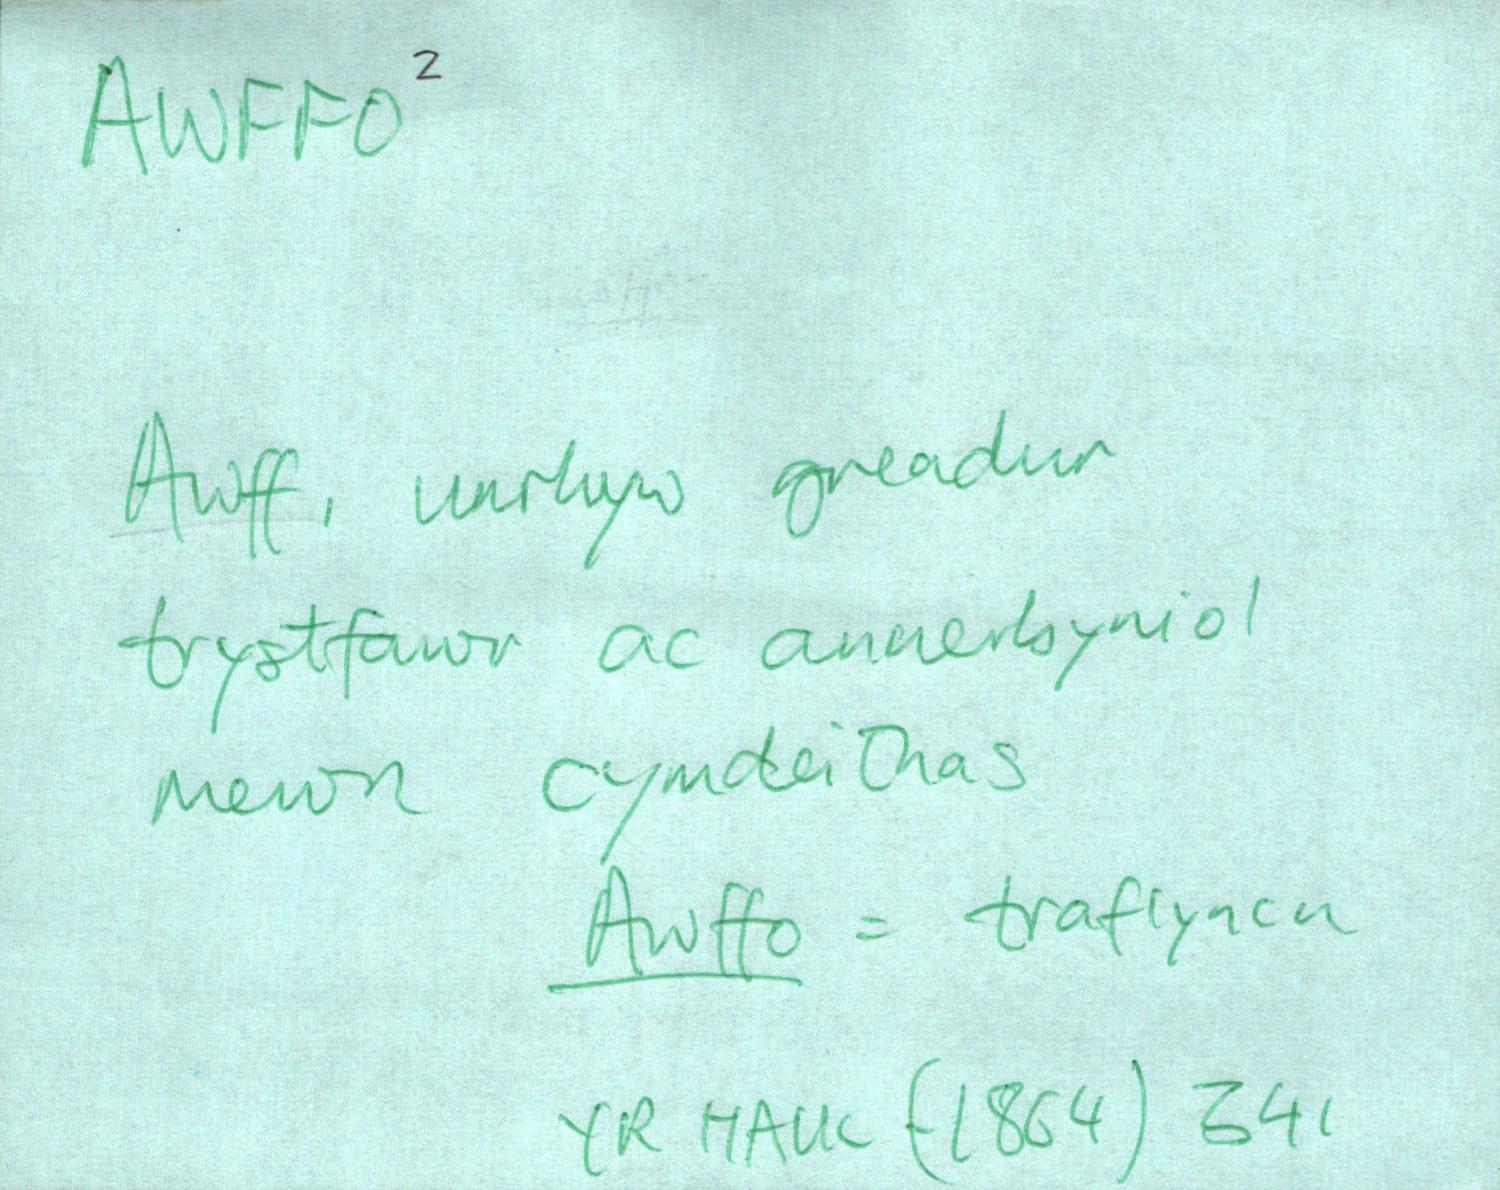 AWFFO²
Awff, unrhyw greadur
trystfawr ac annerbyniol
mewn cymdeithas
Awffo = traflyncu
YR HAUL (1864) 341